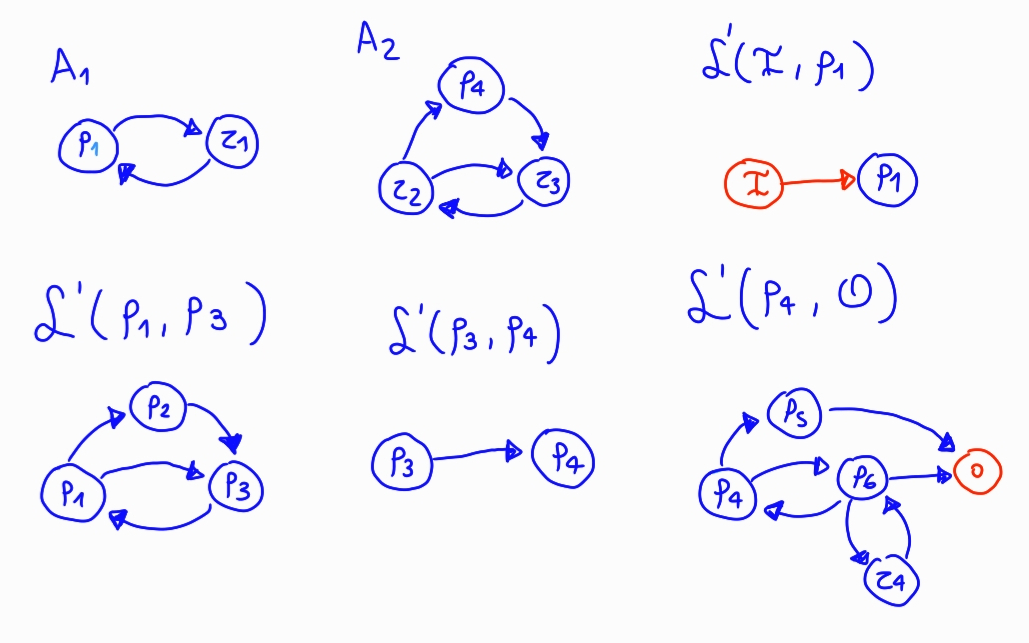 A₁
p₁ z₁
A₂
p₄
z₂ z₃
ℒ'(I, p₁)
I p₁
ℒ'(p₁, p₃)
p₂
p₁ p₃
ℒ'(p₃, p₄)
p₃ p₄
ℒ'(p₄, O)
p₅
p₄ p₆ O
z₄